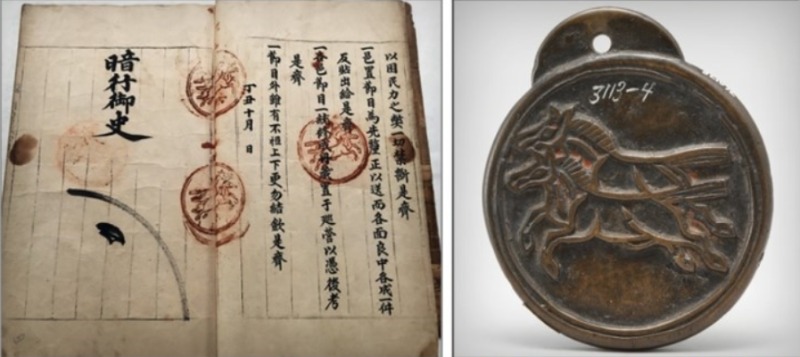 以困民力之獘一切禁斷是齊
一邑置節目為先釐正以送而各面良中各成一件
反貼出給是齊
一各邑節目一統修成置于巡營以憑後考
是齊
一節目外雖有不相上下更勿結斂是齊
丁丑十月 日
暗行御史
3113-4